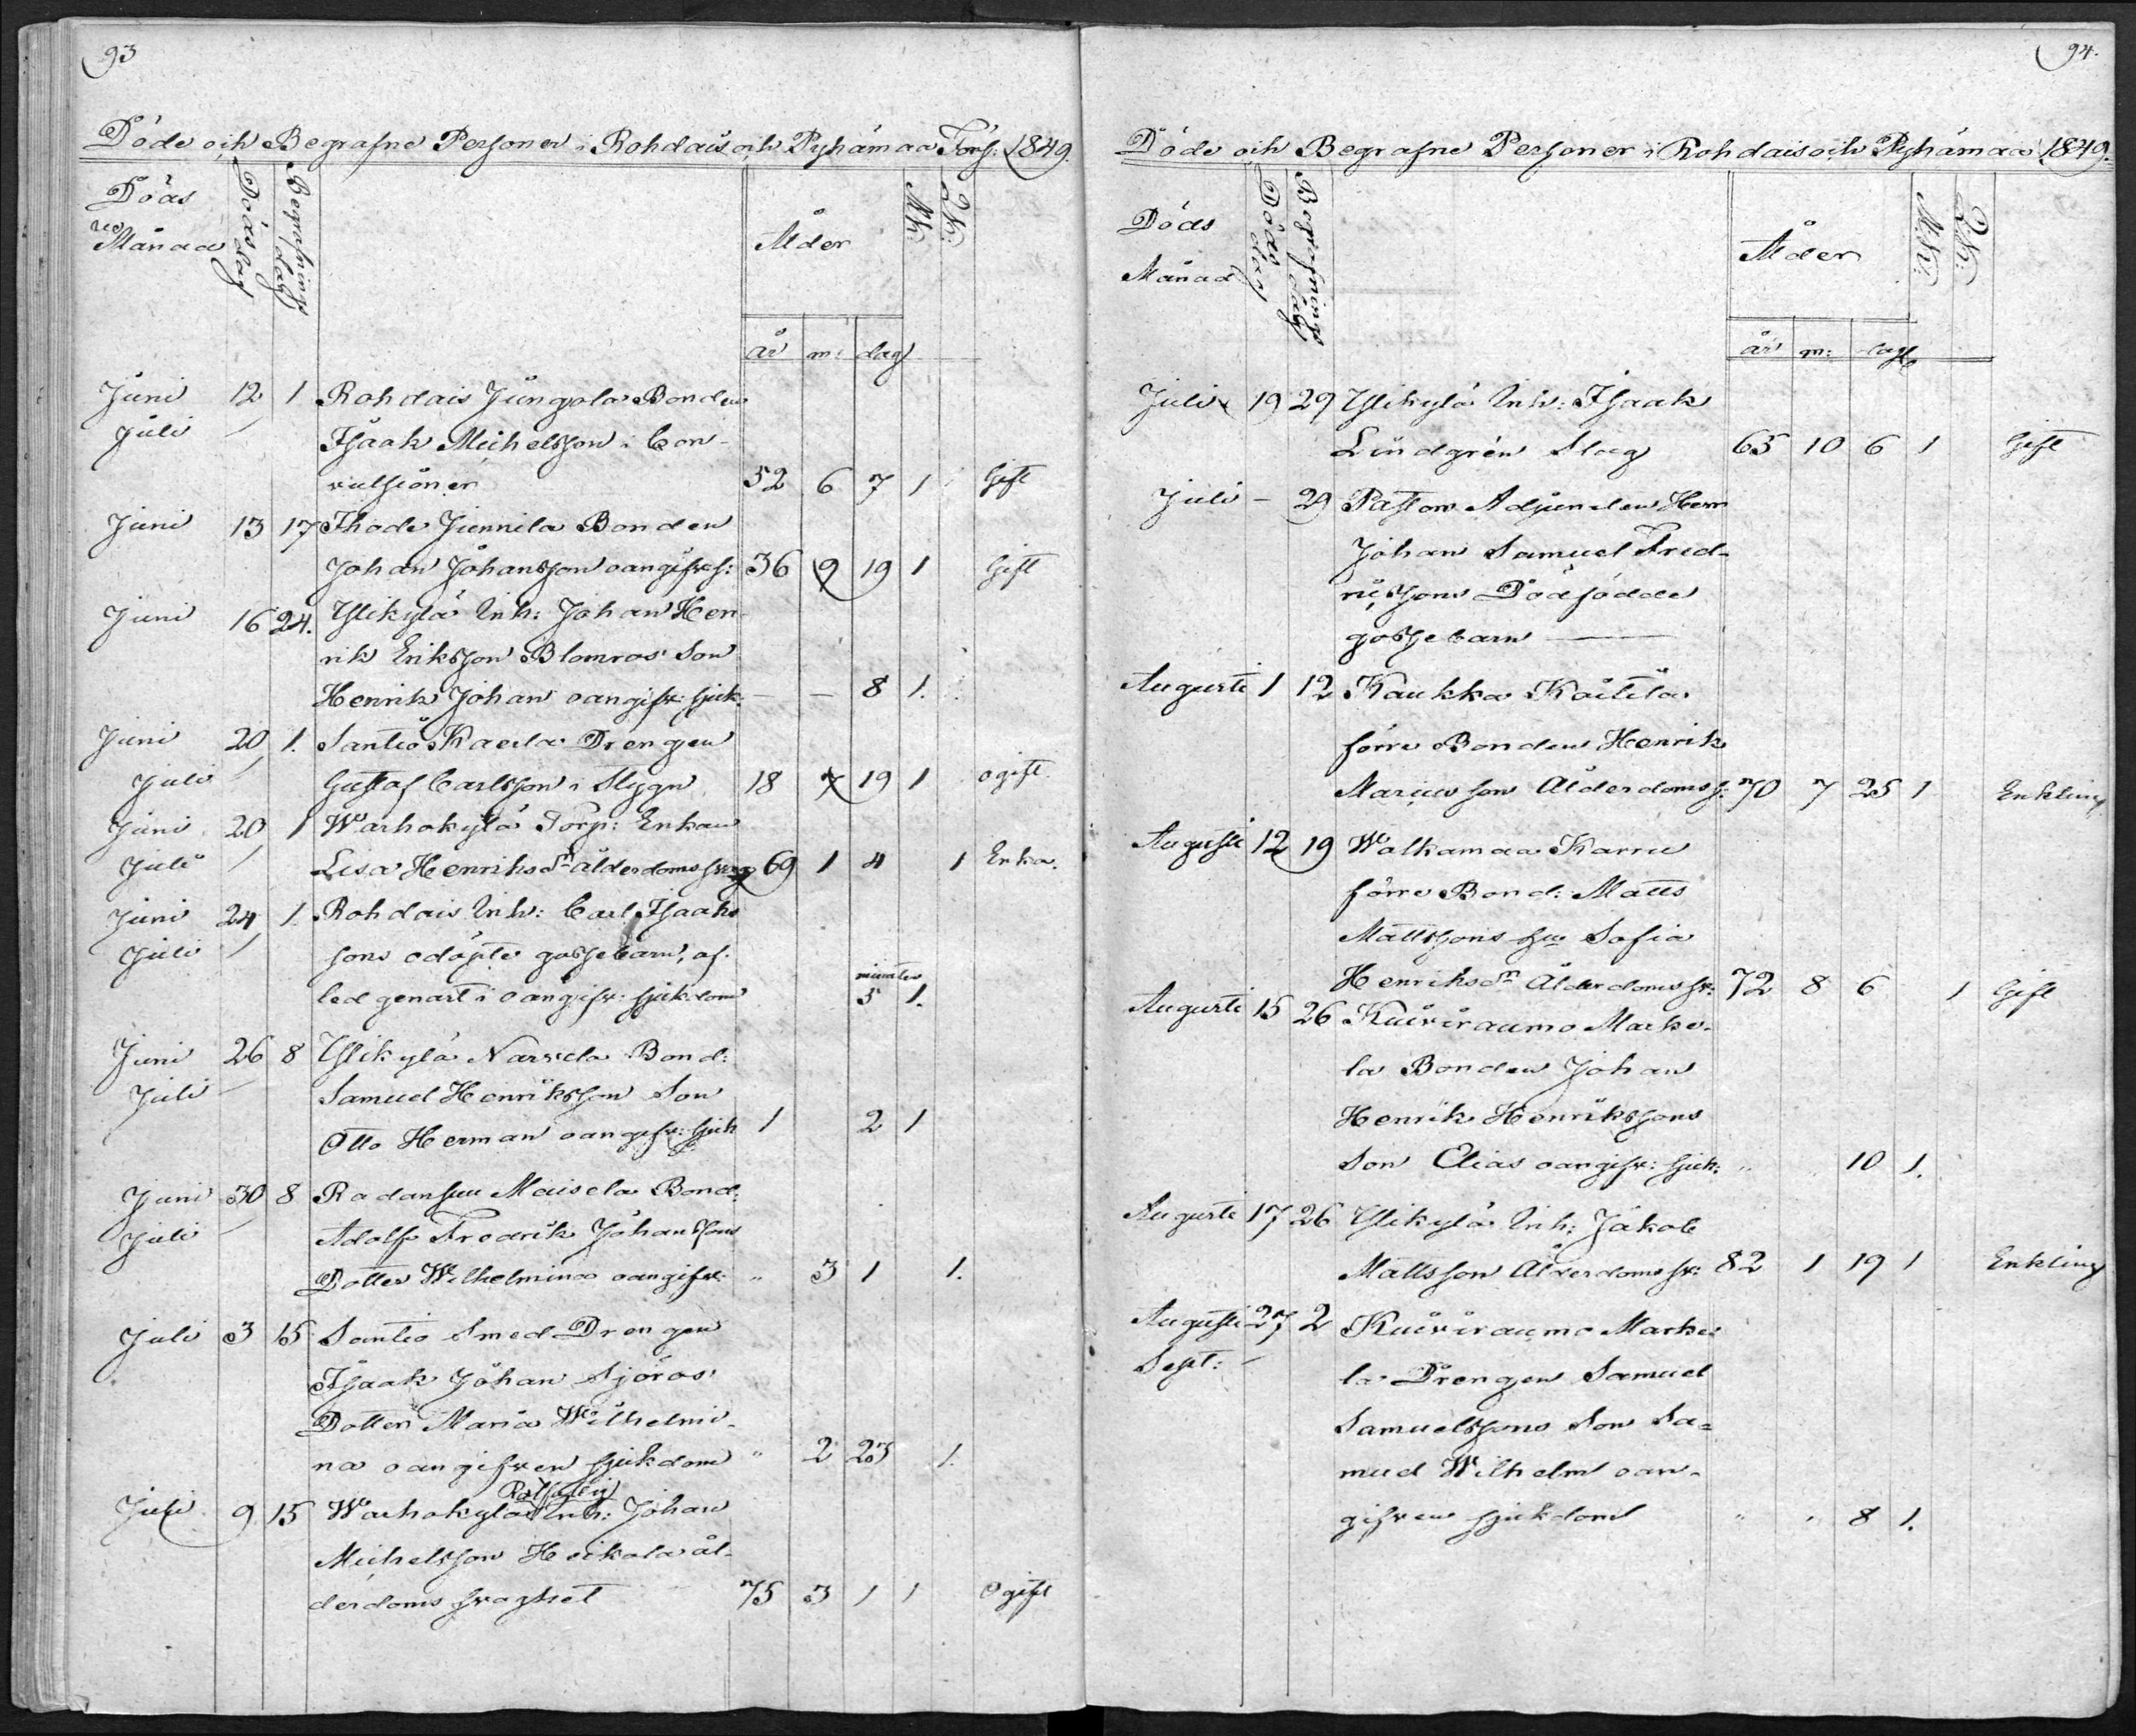 93
Döde och Begrafne Personer i Rohdais och Pyhämaa Förs: 1849.
Döds
Månad
Dödsdag
Begrafnings
dag
Ålder
M.k:
Q.k:
år m: dag
Juni 12 1 Rohdais Junnola Bonden
Juli Isaak Michelsson i Con-
vulsioner 52 6 7 1 Gift
Juni 13 17 Ihode Junnila Bonden
Johan Johansson oangifve s: 36 9 19 1 Gift
Juni 16 24. Ylikylä Inh: Johan Hen
rik Eriksson Blomros Son
Henrik Johan oangifv: sjuk: — — 8 1.
Juni 20 1. Santio Kaerla Drengen
Juli Gustaf Carlsson i Stygn 18 7 19 1 ogift
Juni 20 1 Warhokylä Torp: Enkan
Juli Lisa Henriksdr ålderdomssvag 69 1 4 1 Enka.
Juni 24 1. Rohdais Inh: Carl Isaaks
Juli sons odöpte gossebarn, af-
minuter
led genast i oangifv: sjukdom 5 1.
Juni 26 8 Ylikylä Narvela Bond:
Juli Samuel Henriksson Son
Otto Herman oangifv: sjuk 1 2 1
Juni 30 8 Radansuu Maisela Bond:
Juli Adolf Fredrik Johanssons
Dotter Wilhelmina oangifv: " 3 1 1.
Juli 3 15 Santio Smed Drengen
Isaak Johan Sjöros
Dotter Maria Wilhelmi-
na oangifven sjukdom " 2 23 1.
Juli 9 15 Warhokylä Inh: Johan
Michelsson Heikola ål-
derdoms svaghet 75 3 1 1 Ogift
94.
Döde och Begrafne Personer i Rohdais och Pyhämaa 1849.
Döds
Månad
Döds
dag
Begrafnings
dag
Ålder
M.k:
Q.k:
år m: dag
Juli 19 29 Ylikylä Inh: Isaak
Lindgrén Slag 65 10 6 1 Gift
Juli — 29 Pastors Adjuncten Herr
Johan Samuel Fred-
ricssons Dödfödde
gossebarn —
Augusti 1 12 Kaukka Kaitila
förre Bonden Henrik
Mariusson Ålderdoms s: 70 7 25 1 Enkling
Augusti 12 19 Walkamaa Karru
förre Bond: Matts
Mattssons hu Sofia
Henriksdr Ålderdoms sv: 72 8 6 1 Gift
Augusti 15 26 Kuiviraumo Marke-
la Bonden Johan
Henrik Henrikssons
Son Elias oangifv: sjuk: " 10 1.
Augusti 17 26 Ylikylä Inh: Jakob
Mattsson Ålderdoms sv: 82 1 19 1 Enkling
Augusti 27 2 Kuiviraumo Marke-
Sept: la Drengen Samuel
Samuelssons Son Sa=
muel Wilhelm oan-
gifven sjukdom " " 8 1.